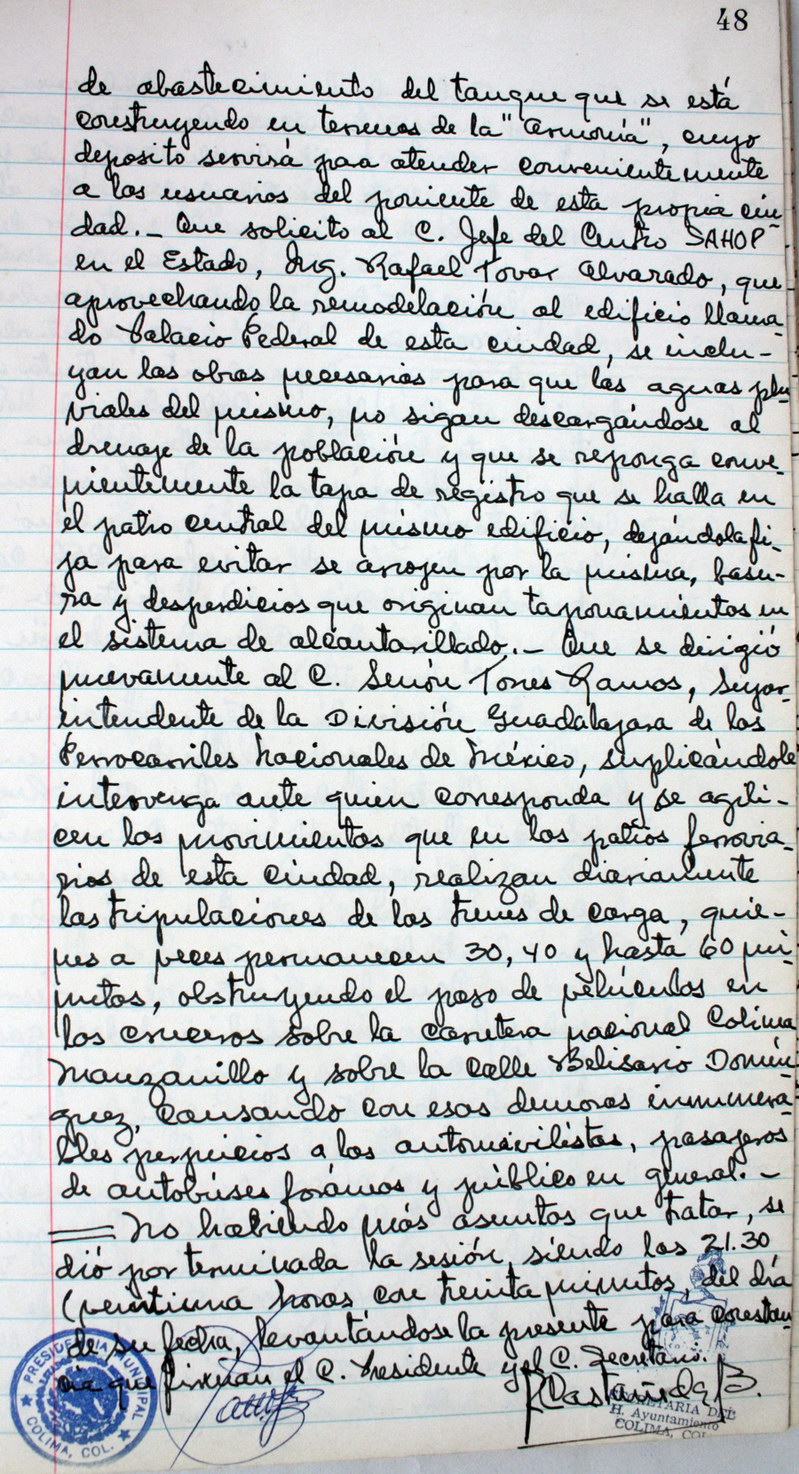 48
de abastecimiento del tanque que se está
construyendo en terrenos de la "Armonía", cuyo
deposito servirá para atender convenientemente
a los usuarios del poniente de esta propia ciu-
dad.- Que solicito al C. Jefe del Centro SAHOP
en el Estado, Ing. Rafael Tovar Alvarado, que
aprovechando la remodelación al edificio llama-
do Palacio Federal de esta ciudad, se inclu-
yan las obras necesarias para que las aguas plu
viales del mismo, no sigan descargándose al
drenaje de la población y que se reponga conve-
nientemente la tapa de registro que se halla en
el patio central del mismo edificio, dejándola fi-
ja para evitar se arrojen por la misma, basu-
ra y desperdicios que originan taponamientos en
el sistema de alcantarillado.- Que se dirigió
nuevamente al C. Senón Torres Ramos, Super-
intendente de la División Guadalajara de los
Ferrocarriles Nacionales de México, suplicándole
intervenga ante quien corresponda y se agili-
cen los movimientos que en los patios ferrovia-
rios de esta ciudad, realizan diariamente
las tripulaciones de los trenes de carga, quie-
nes a veces permanecen 30, 40 y hasta 60 mi-
nutos, obstruyendo el paso de vehículos en
los cruceros sobre la carretera nacional Colima
Manzanillo y sobre la calle Belisario Domín-
guez, causando con esas demoras innumera-
bles perjuicios a los automovilistas, pasajeros
de autobúses foráneos y público en general.-
No habiendo más asuntos que tratar, se
dió por terminada la sesión, siendo las 21.30
(veintiuna horas con treinta minutos, del día
de su fecha, levantándose la presente para constan-
cia que firman el C. Presidente y el C. Secretario.
PRESIDENCIA MUNICIPAL
COLIMA, COL.
RCastañeda B.
SECRETARIA DEL
H. Ayuntamiento
COLIMA, COL.